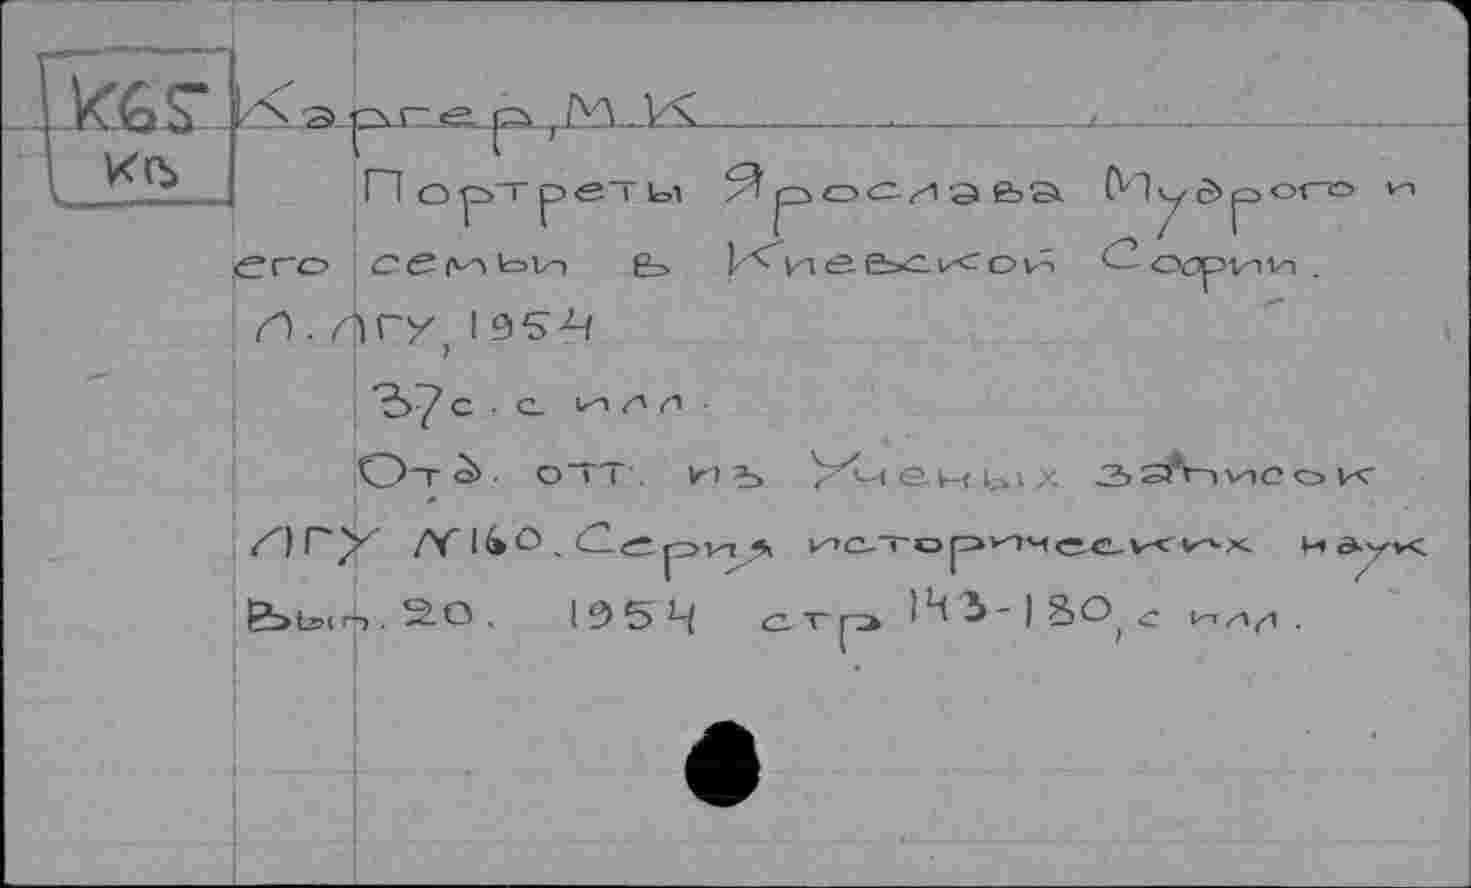 К65 Каргер, М.К
К23
Портреты Ярослава Мудрого и
его семьи в Киевской Софии.
Л. ЛГУ, 1954
37с. с илл.
Отд. отт. из Ученых записок
ЛГУ №160. Серия исторических наук
Вып. 20. 1954 стр 143-180, с илл.